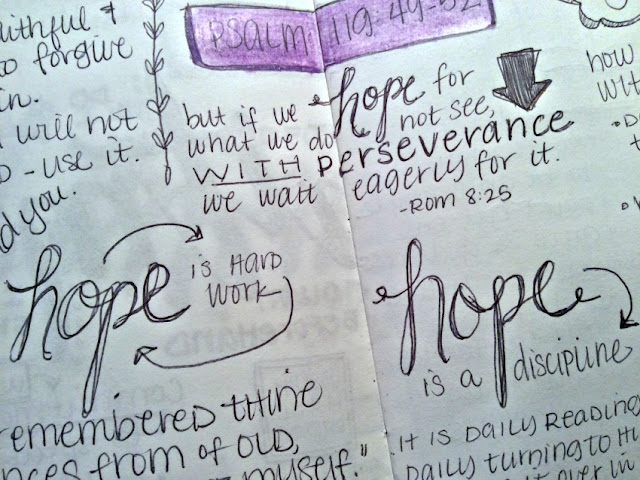 PSALM 119:49-52
faithful &
to forgive
in.
I will not
D - use it.
d you.
but if we hope for
what we do not see,
WITH perseverance
we wait eagerly for it.
-Rom 8:25
how
wit
hope is HARD
WORK
hope
is a discipline
remembered thine
nces from of old,
myself."
IT IS DAILY READING
DAILY turning to Hi
over in